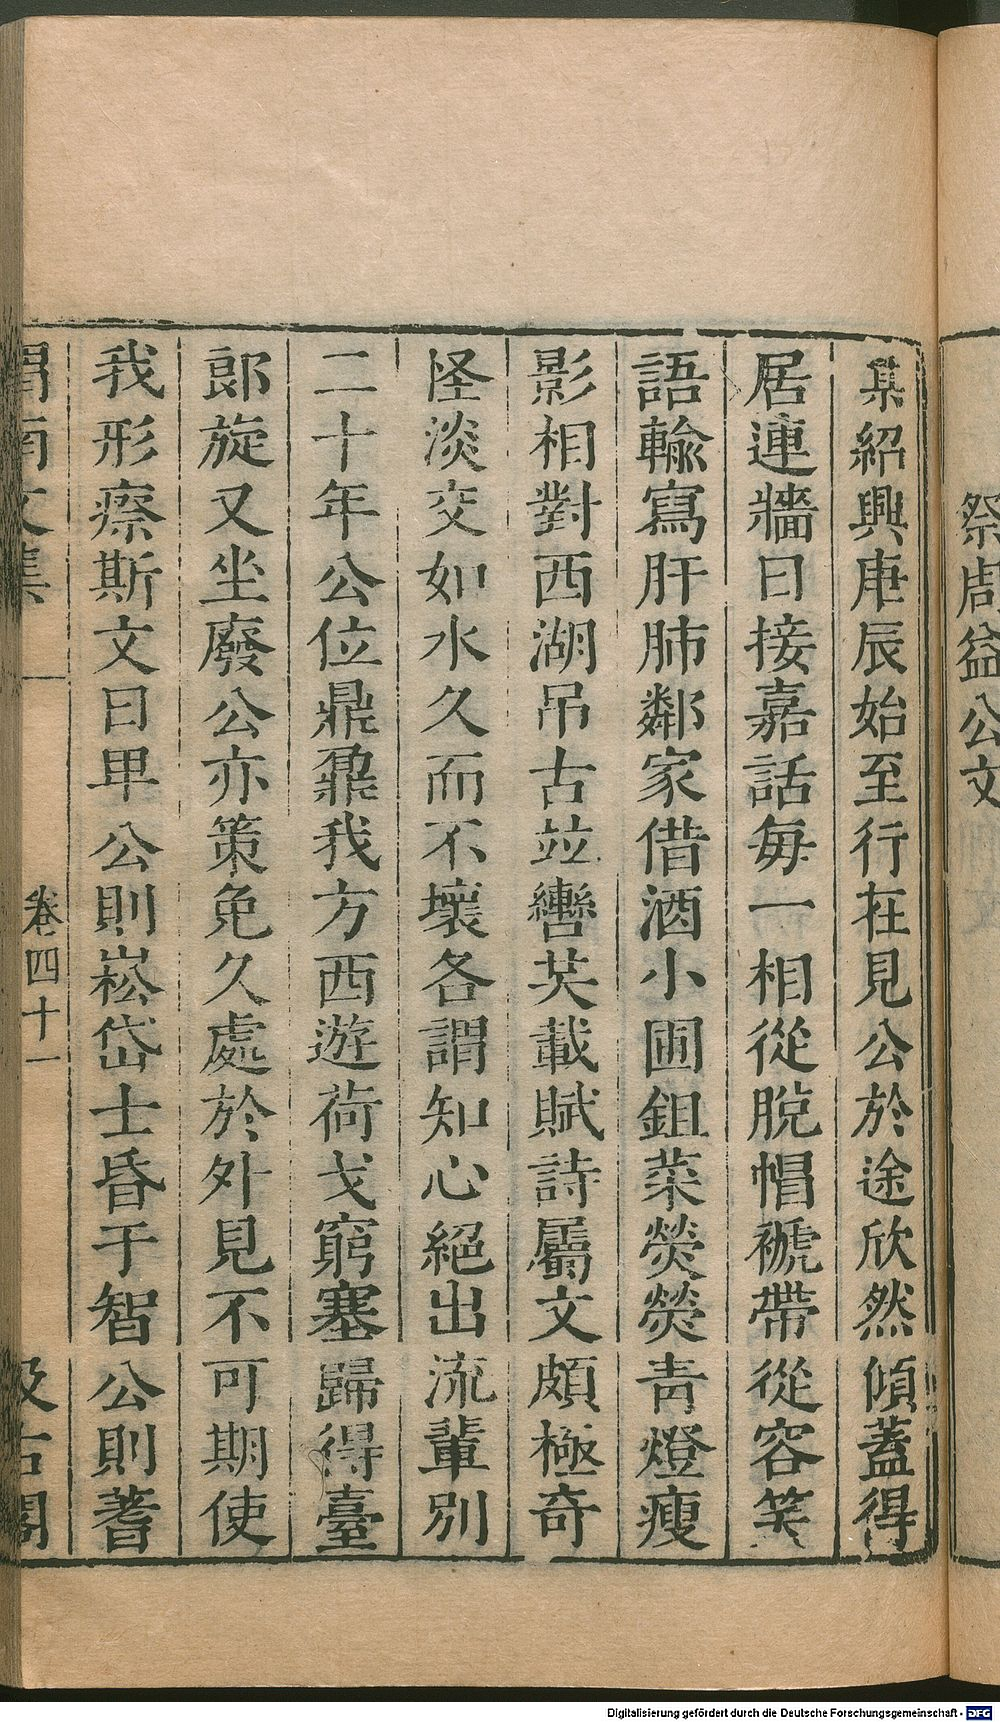 祭周益公文
某紹興庚辰始至行在見公於途欣然傾蓋得
居連牆日接嘉話每一相從脫帽褫帶從容笑
語輸寫肝肺鄰家借酒小圃鉏菜熒熒青燈瘦
影相對西湖吊古並轡共載賦詩屬文頗極奇
怪淡交如水久而不壞各謂知心絕出流輩別
二十年公位鼎鼐我方西遊荷戈窮塞歸得臺
郎旋又坐廢公亦策免久處於外見不可期使
我形瘵斯文日卑公則崧岱士昏于智公則蓍
渭南文集
卷四十一
汲古閣
Digitalisierung gefördert durch die Deutsche Forschungsgemeinschaft - DFG